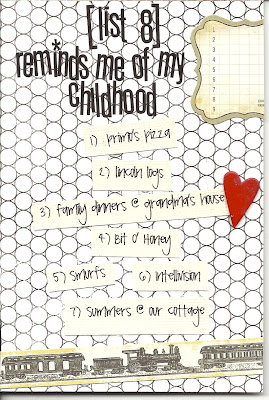 [list 8]
reminds me of my
childhood
1
2
3
4
5
6
7
8
9
1) primo's pizza
2) lincoln logs
3) family dinners @ grandma's house
4) Bit O' Honey
5) smurfs 6) intellivision
7) summers @ our cottage